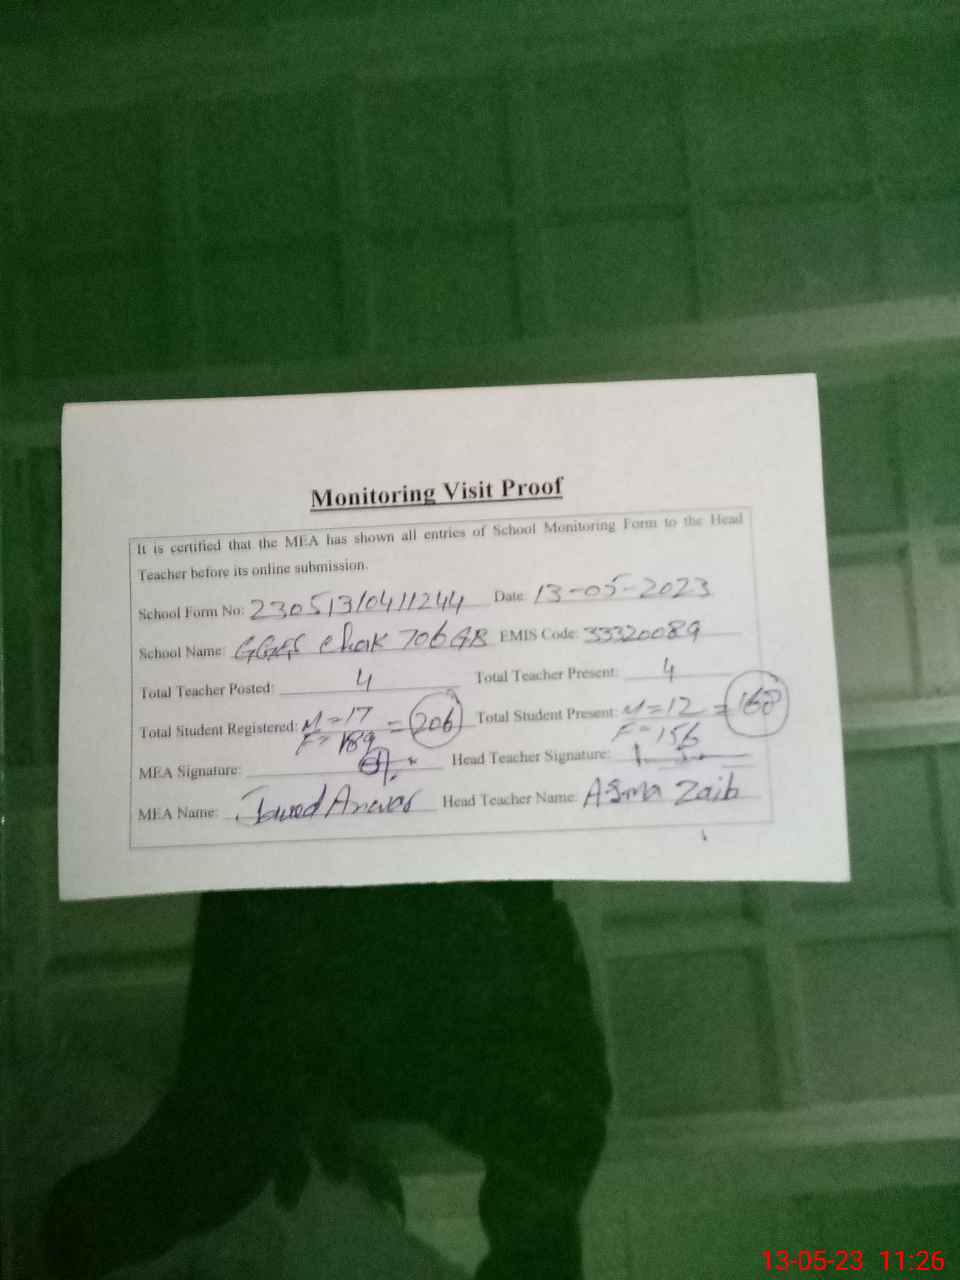 Monitoring Visit Proof
It is certified that the MEA has shown all entries of School Monitoring Form to the Head
Teacher before its online submission.
School Form No: 23051310411244 Date: 13-05-2023
School Name: GGES Chak 706 GB EMIS Code: 33320089
Total Teacher Posted: 4 Total Teacher Present: 4
Total Student Registered: M=17 F=189 = 206 Total Student Present: M=12 F=156 = 168
MEA Signature: Head Teacher Signature:
MEA Name: Head Teacher Name: Asma Zaib
13-05-23 11:26